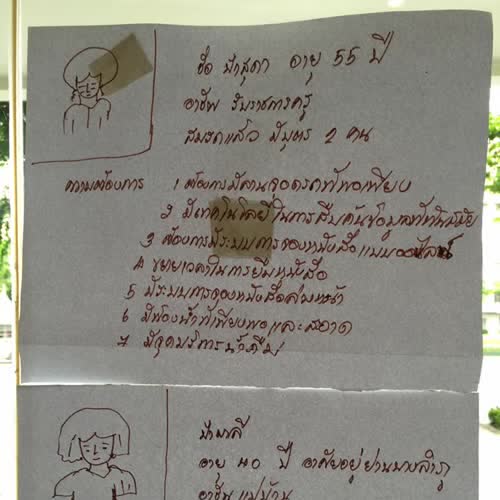 ชื่อ ป้าสุดา อายุ 55 ปี
อาชีพ รับราชการครู
สมรสแล้ว มีบุตร 2 คน
ความต้องการ 1 ต้องการมีลานจอดรถที่พอเพียง
2 มีเทคโนโลยีในการสืบค้นข้อมูลที่ทันสมัย
3 ต้องการมีระบบการจองหนังสือแบบออนไลน์
4 ขยายเวลาในการยืมหนังสือ
5 มีระบบการจองหนังสือล่วงหน้า
6 มีห้องน้ำที่เพียงพอและสะอาด
7 มีจุดบริการน้ำดื่ม
ป้ามาลี
อายุ 40 ปี อาศัยอยู่ย่านบางลำภู
อาชีพ แม่บ้าน